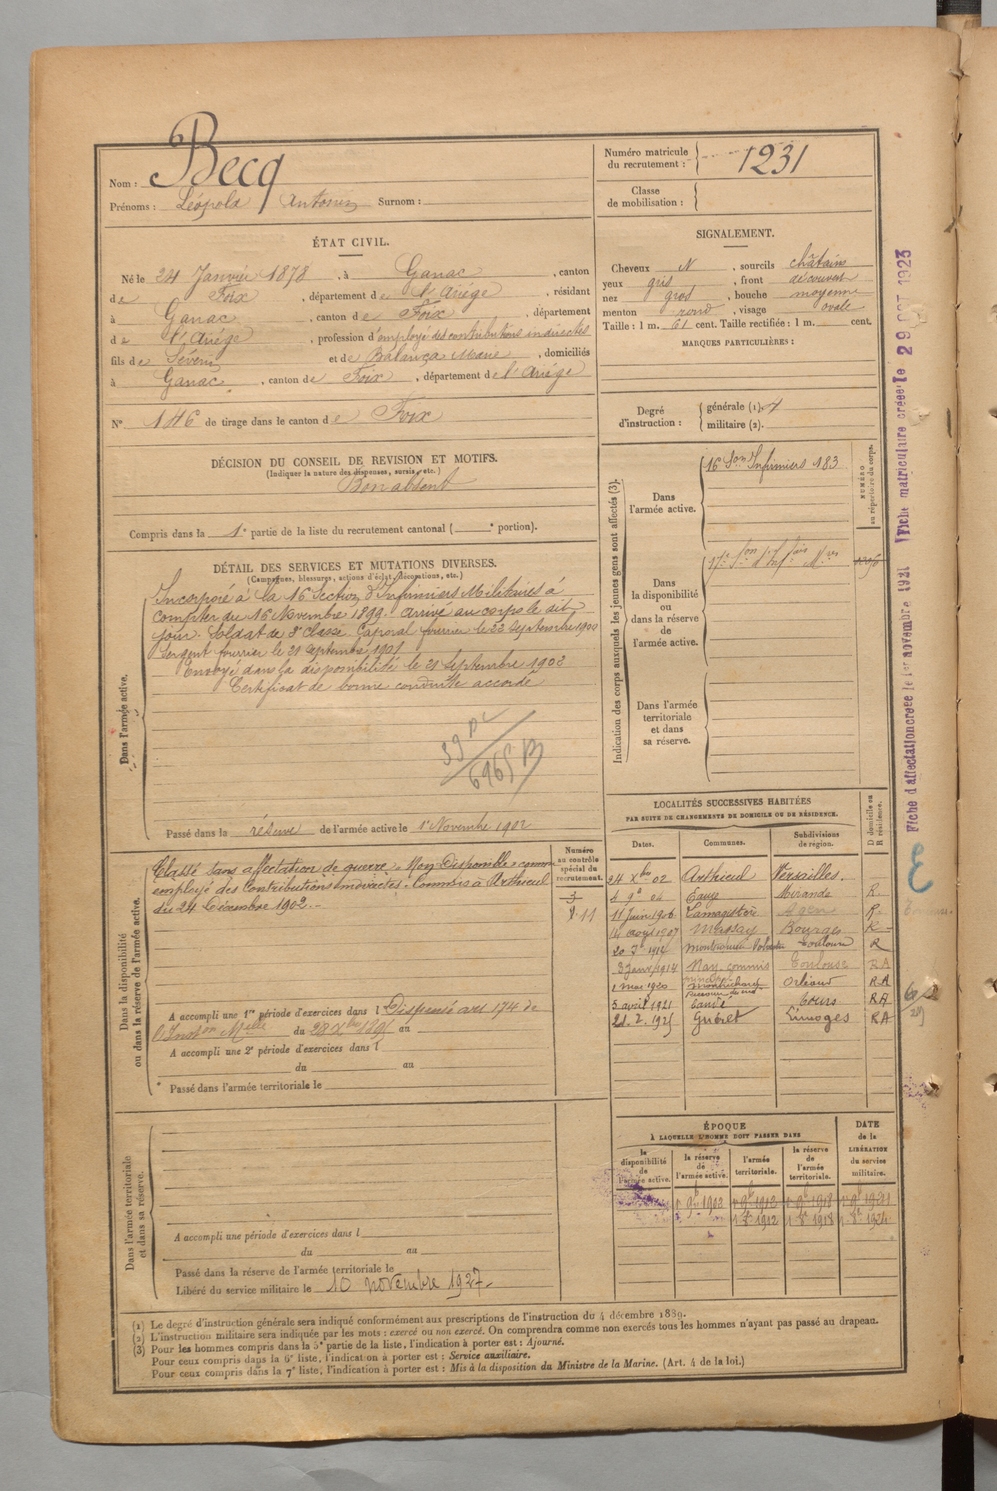 Nom : Becq
Prénoms : Léopold Antonin Surnom :
Numéro matricule du recrutement : 1231
Classe de mobilisation :
ÉTAT CIVIL.
Né le 24 Janvier 1878, à Ganac, canton
de Foix, département de l'Ariège, résidant
à Ganac, canton de Foix, département
de l'Ariège, profession d'employé des contributions indirectes
fils de Séverin et de Balança Marie, domiciliés
à Ganac, canton de Foix, département de l'Ariège
N° 146 de tirage dans le canton de Foix
SIGNALEMENT.
Cheveux N, sourcils châtains
yeux gris, front découvert
nez gros, bouche moyenne
menton rond, visage ovale
Taille : 1 m. 61 cent. Taille rectifiée : 1 m. cent.
MARQUES PARTICULIÈRES :
Degré d'instruction : générale (1).
militaire (2).
DÉCISION DU CONSEIL DE REVISION ET MOTIFS.
(Indiquer la nature des dispenses, sursis, etc.)
Bon absent
Compris dans la 1e partie de la liste du recrutement cantonal ( e portion).
DÉTAIL DES SERVICES ET MUTATIONS DIVERSES.
(Campagnes, blessures, actions d'éclat, décorations, etc.)
Dans l'armée active.
Incorporé à la 16 Section d'Infirmiers Militaires à
compter du 16 Novembre 1899. Arrivé au corps le dit
jour. Soldat de 2e classe. Caporal fourrier le 22 Septembre 1900
Sergent fourrier le 21 Septembre 1901
Envoyé dans la disponibilité le 21 Septembre 1902
Certificat de bonne conduite accordé
Passé dans la réserve de l'armée active le 1er Novembre 1902
Indication des corps auxquels les jeunes gens sont affectés (3).
NUMÉRO au répertoire du corps.
Dans l'armée active.
16 Son Infirmiers 183
Dans la disponibilité ou dans la réserve de l'armée active.
17e Son d'Inf
Dans l'armée territoriale et dans sa réserve.
Dans la disponibilité ou dans la réserve de l'armée active.
Classé sans affectation de guerre « Non Disponible » comme
employé des Contributions Indirectes. Commis à Arthieul
du 24 Décembre 1902.
Numéro au contrôle spécial du recrutement.
A accompli une 1re période d'exercices dans l Dispensé art 174 de
l'Inston Mlle du 28 Xbre 1895 au
A accompli une 2e période d'exercices dans l
du au
Passé dans l'armée territoriale le
LOCALITÉS SUCCESSIVES HABITÉES
PAR SUITE DE CHANGEMENTS DE DOMICILE OU DE RÉSIDENCE.
Dates. Communes. Subdivisions de région. D domicile ou R résidence.
24 Xbre 02 Arthieul Versailles.
04 Eauze Mirande R.
11 Juin 1906 Lamagistère Agen R.
1907 Massay Bourges R
1914 Toulouse R
3 janv 1914 Nay. commis Toulouse RA
1 mai 1920 Orléans RA
5 avril 1921 Tours RA
21. 2. 1925 Guéret Limoges RA
Dans l'armée territoriale et dans sa réserve.
A accompli une période d'exercices dans l
du au
Passé dans la réserve de l'armée territoriale le
Libéré du service militaire le 10 novembre 1927.
ÉPOQUE
À LAQUELLE L'HOMME DOIT PASSER DANS
DATE de la LIBÉRATION du service militaire.
la disponibilité de l'armée active. la réserve de l'armée active. l'armée territoriale. la réserve de l'armée territoriale.
1er 9bre 1902 1er 9bre 1912 1er 9bre 1918
1912 1918 1924
(1) Le degré d'instruction générale sera indiqué conformément aux prescriptions de l'instruction du 4 décembre 1889.
(2) L'instruction militaire sera indiquée par les mots : exercé ou non exercé. On comprendra comme non exercés tous les hommes n'ayant pas passé au drapeau.
(3) Pour les hommes compris dans la 5e partie de la liste, l'indication à porter est : Ajourné.
Pour ceux compris dans la 6e liste, l'indication à porter est : Service auxiliaire.
Pour ceux compris dans la 7e liste, l'indication à porter est : Mis à la disposition du Ministre de la Marine. (Art. 4 de la loi.)
Fiche d'affectation créée le 1er novembre 1921 Fiche matriculaire créée le 29 OCT 1923